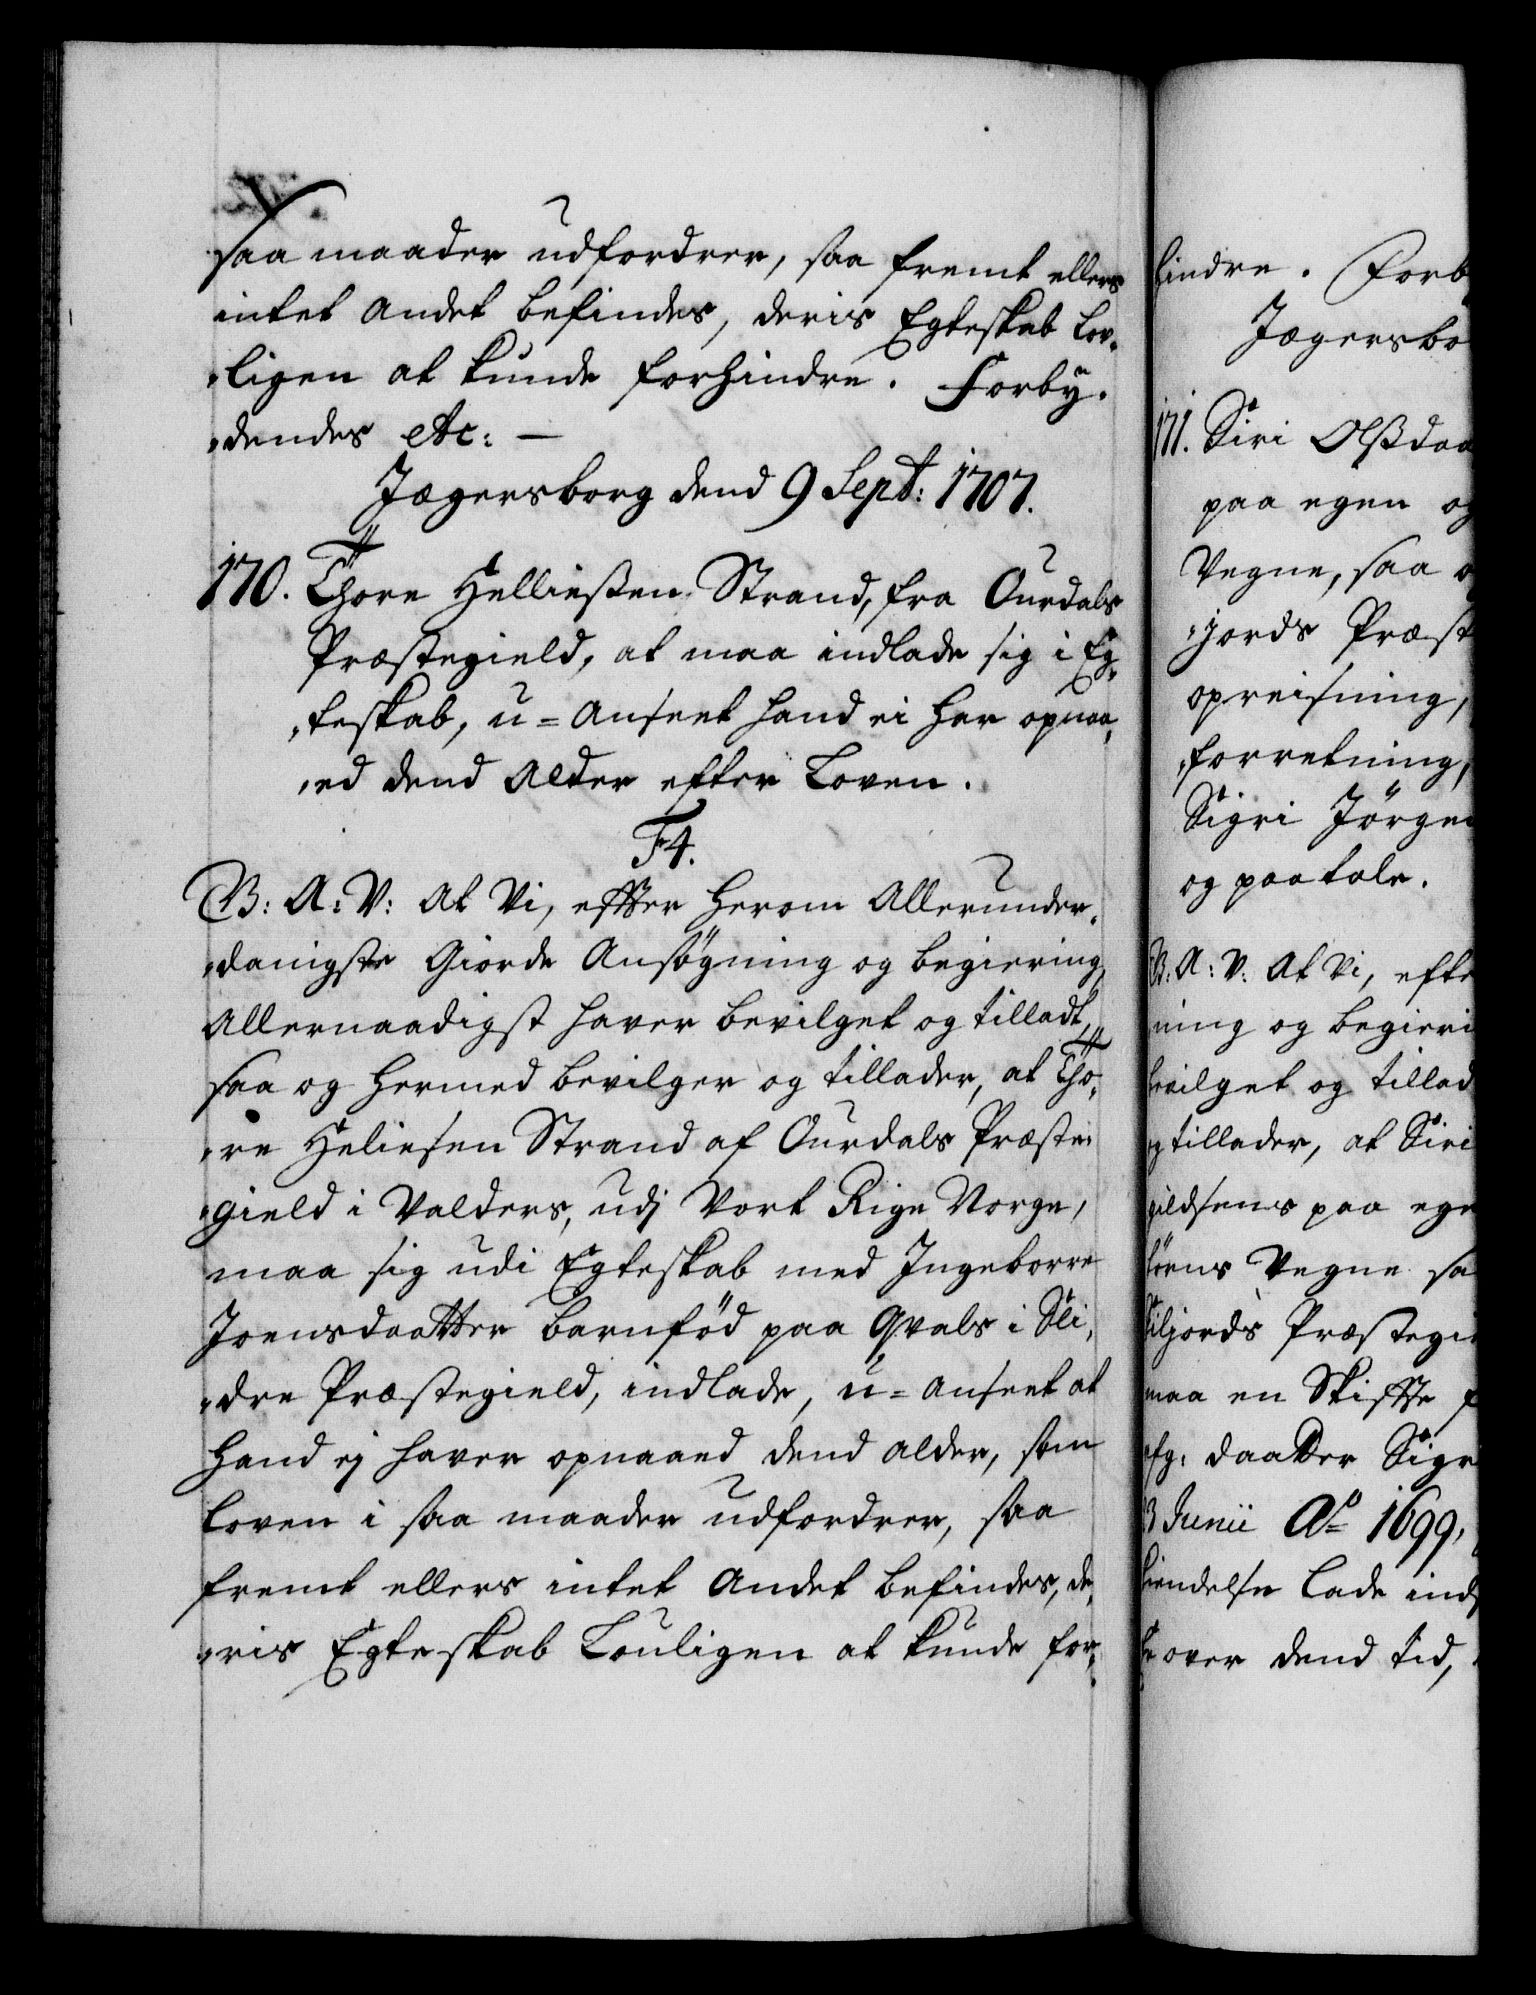 saa maader udfordrer, saa fremt ellers
intet andet befindes, deris Egteskab lov-
ligen at kunde forhindre. Forby-
dendes etc: —
Jægersborg dend 9 Sept: 1707.
170. Thore Hellieszen Strand, fra Ourdals
Præstegield, at maa indlade sig i Eg-
teskab, u=anseet hand ei har opnaa-
ed dend Alder efter Loven.
F4.
B: A: V: At Vi, effter herom Allerunder-
danigste Giorde Ansøgning og begiering,
Allernaadigst haver bevilget og tilladt,
saa og hermed bevilger og tillader, at Tho-
re Heliesen Strand af Ourdals Præste-
gield i Valders, udj Vort Rige Norge,
maa sig udi Egteskab med Ingeborre
Joensdaatter barnfød paa Qvals i Sli-
dre Præstegield, indlade, u=anseet at
hand ej haver opnaaed dend alder, som
loven i saa maader udfordrer, saa
fremt ellers intet andet befindes, de-
ris Egteskab Louligen at kunde for-
hindre. Forb
Jægersbo
171. Siri Olszdaa
paa egen og
Vegne, saa
jords Præst
opreisning,
forretning,
Sigri Jørgen
og paatale.
B. A: V. At Vi, efte
ning og begieri
bevilget og tillad
og tillader, at Siri
gildsens paa ege
Vegne sa
Siljords Præstegi
maa en Skiffte f
afg: daatter Sigri
3 Junii Ao 1699,
kiendelse lade ind
over dend tid,